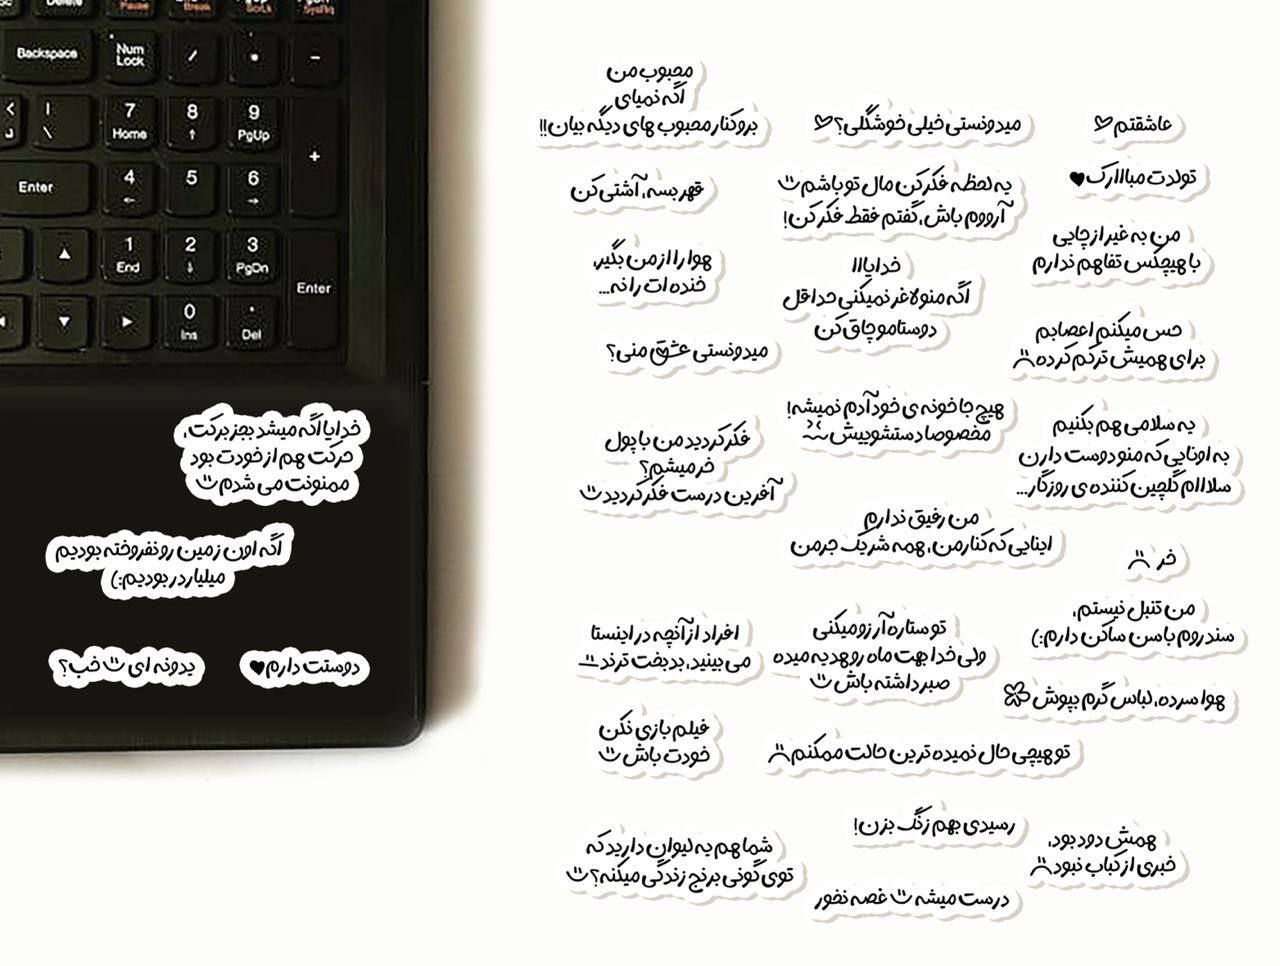 Delete
Pause
Break
PgUp
ScrLk
PgDn
SysRq
Backspace
Num
Lock
/
*
-
7
Home
8
↑
9
PgUp
+
|
\
Enter
4
←
5
6
→
1
End
2
↓
3
PgDn
Enter
0
Ins
.
Del
خدایا اگه میشد بجز برکت،
حرکت هم از خودت بود
ممنونت می شدم
اگه اون زمین رو نفروخته بودیم
میلیاردر بودیم:)
دوستت دارم♥
یدونه ای خب؟
عاشقتم♡
تولدت مبااارک♥
من به غیر از چایی
با هیچکس تفاهم ندارم
حس میکنم اعصابم
برای همیش ترکم کرده
یه سلامی هم بکنیم
به اونایی که منو دوست دارن
سلاام گلچین کننده ی روزگار...
خر
من تنبل نیستم،
سندروم باسن ساکن دارم:)
هوا سرده، لباس گرم بپوش
همش دود بود،
خبری از کباب نبود
میدونستی خیلی خوشگلی؟♡
یه لحظه فکر کن مال تو باشم
آرووم باش، گفتم فقط فکر کن!
خدایااا
اگه منو لاغر نمیکنی حداقل
دوستامو چاق کن
هیچ جا خونه ی خود آدم نمیشه!
مخصوصا دستشوییش
من رفیق ندارم
اینایی که کنار من، همه شریک جرمن
تو ستاره آرزو میکنی
ولی خدا بهت ماه رو هدیه میده
صبر داشته باش
تو هیچی حال نمیده ترین حالت ممکنم
رسیدی بهم زنگ بزن!
درست میشه غصه نخور
محبوب من
اگه نمیای
برو کنار محبوب های دیگه بیان!!
قهر بسه، آشتی کن
هوا را از من بگیر
خنده ات را نه...
میدونستی عشق منی؟
فکر کردید من با پول
خر میشم؟
آفرین درست فکر کردید
افراد از آنچه در اینستا
می بینید، بدبخت ترند
فیلم بازی نکن
خودت باش
شما هم یه لیوان دارید که
توی گونی برنج زندگی میکنه؟